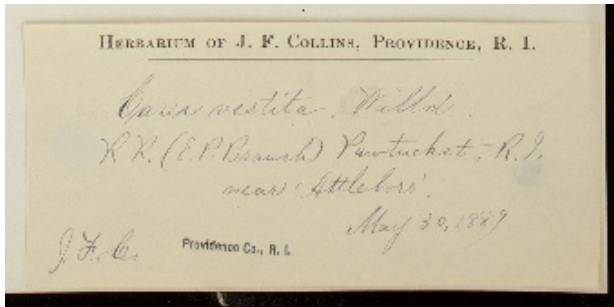 HERBARIUM OF J. F. COLLINS, PROVIDENCE, R. I.
Carex vestita, Willd.
R R. (E. P. Branch) Pawtucket, R. I.
near Attleboro'.
May 30, 1889
J. F. C.
Providence Co., R. I.